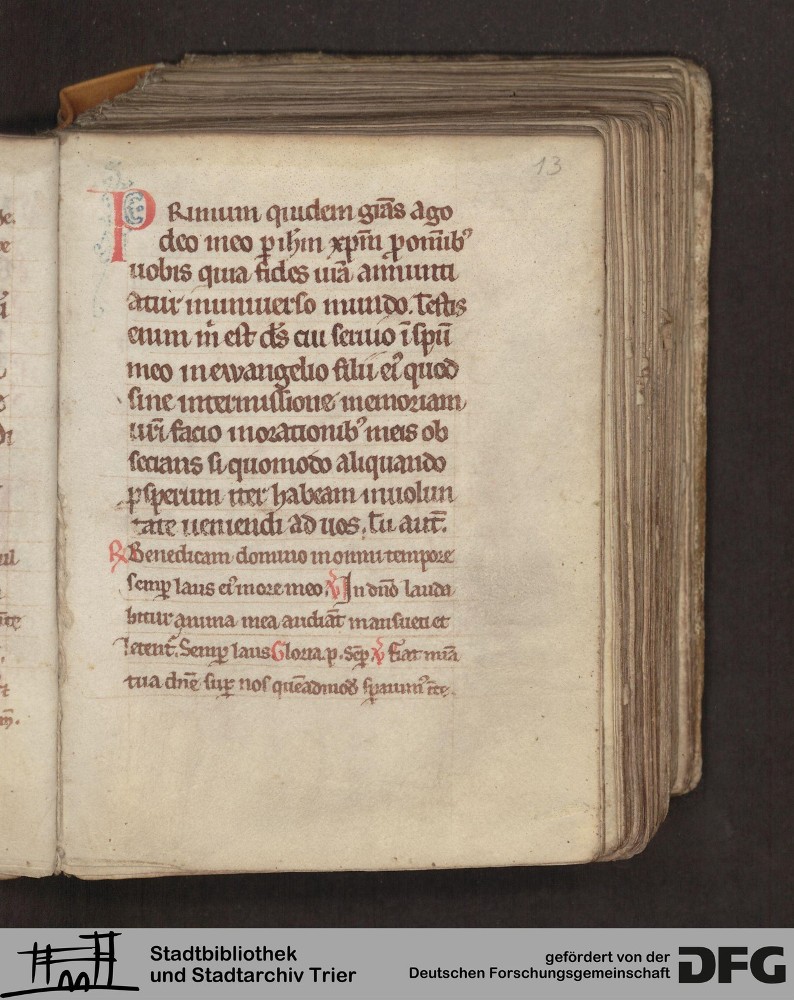 13
PRimum quidem gr̄as ago
deo meo ꝑ ihm̄ xpm̄ ꝓ om̄ib᷒
uobis quia fides ur̄a annunti
atur in uniuerso mundo. Testis
enim m̄ est ds̄ cui seruio ī spū
meo in ewangelio filii ei᷒ quod
sine intermissione memoriam
ur̄i facio in orationib᷒ meis ob
secrans si quomodo aliquando
ꝓsperum iter habeam in uolun
tate ueniendi ad uos. Tu aut̄.
℟ Benedicam domino in omni tempore
semꝑ laus ei᷒ in ore meo. ℣ In dn̄o lauda
bitur anima mea audiāt mansueti et
letent᷒. Semꝑ laus Gloria p. Sēꝑ ℣ Fiat mīa
tua dn̄e suꝑ nos quēadmodū sꝑauim᷒ ī te.
Stadtbibliothek
und Stadtarchiv Trier
gefördert von der
Deutschen Forschungsgemeinschaft
DFG